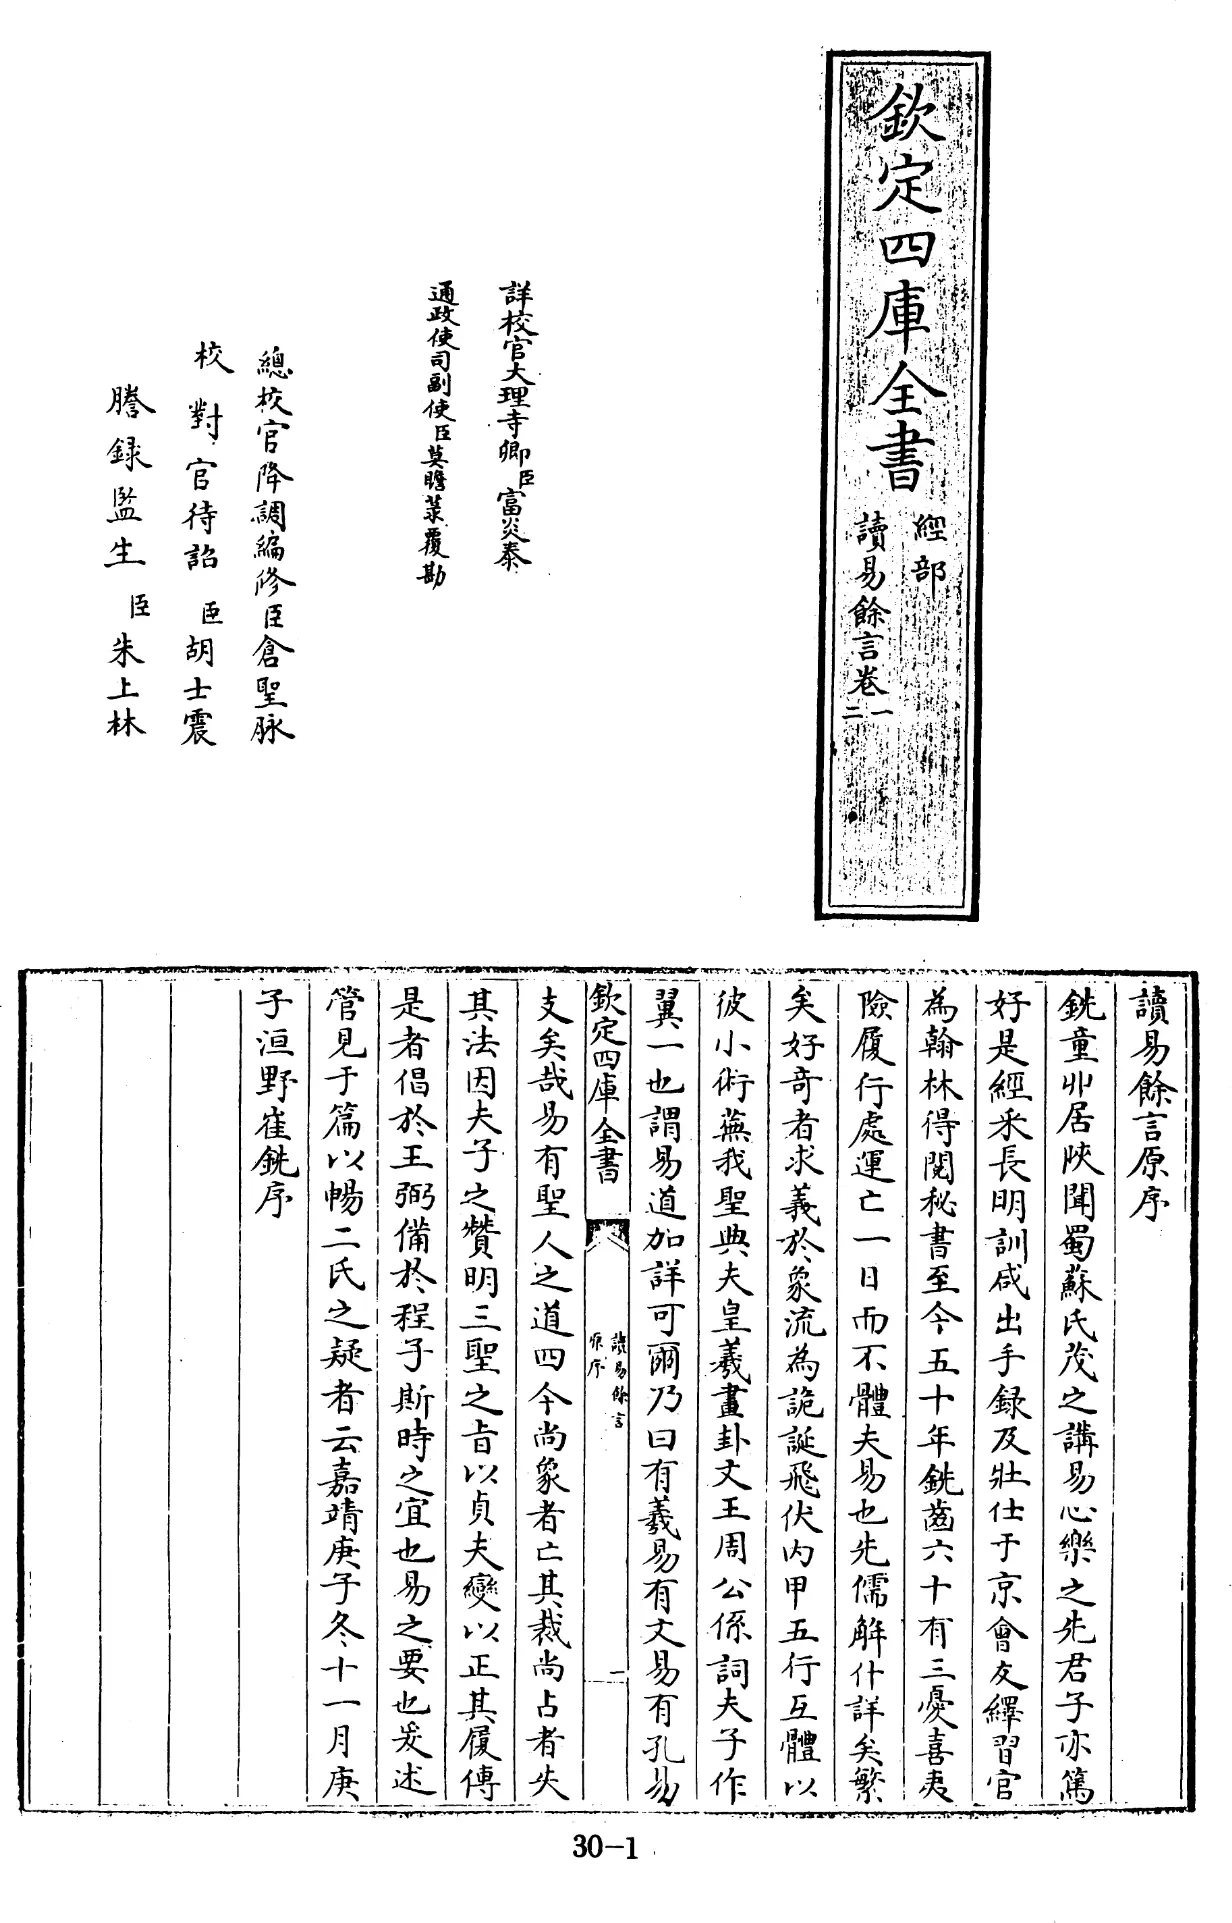 欽定四庫全書
經部
讀易餘言卷一
二
詳校官大理寺卿臣富炎泰
通政使司副使臣莫瞻菉覆勘
總校官降調編修臣倉聖脉
校對官待詔臣胡士震
謄録監生臣朱上林
讀易餘言原序
銑童丱居陜聞蜀蘇氏茂之講易心樂之先君子亦篤
好是經釆長明訓咸出手録及壯仕于京會友繹習官
為翰林得閱秘書至今五十年銑齒六十有三憂喜夷
險履行處運亡一日而不體夫易也先儒解什詳矣繁
矣好奇者求義於象流為詭誕飛伏内甲五行互體以
彼小術蕪我聖典夫皇羲畫卦文王周公係詞夫子作
翼一也謂易道加詳可爾乃曰有羲易有文易有孔易
欽定四庫全書
讀易餘言
原序
一
支矣哉易有聖人之道四今尚象者亡其裁尚占者失
其法因夫子之贊明三聖之旨以貞夫變以正其履傳
是者倡於王弼備於程子斯時之宜也易之要也爰述
管見于篇以暢二氏之疑者云嘉靖庚子冬十一月庚
子洹野崔銑序
30-1